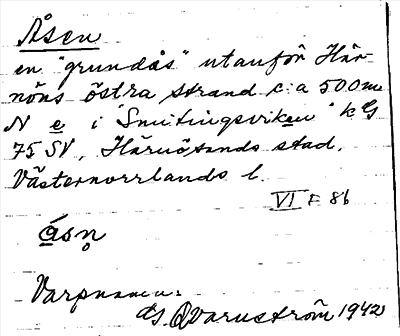 Åsen
en "grundås" utanför Här-
nöns östra strand c:a 500m
N e i "Smitingsviken" k bl
75 SV, Härnösands stad,
Västernorrlands l.
VI F 86
åsn̥
Varpnamn:
ds. Qvarnström 1942